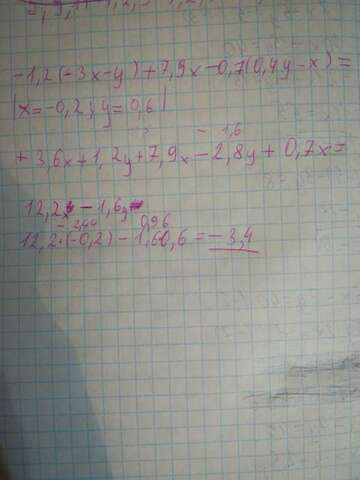 -1,2(-3x-y)+7,9x-0,7(0,4y-x)=
|x=-0,2; y=0,6|
-1,6
+3,6x+1,2y+7,9x-2,8y+0,7x=
12,2x-1,6y=
-2,44 0,96
12,2·(-0,2)-1,6·0,6=-3,4